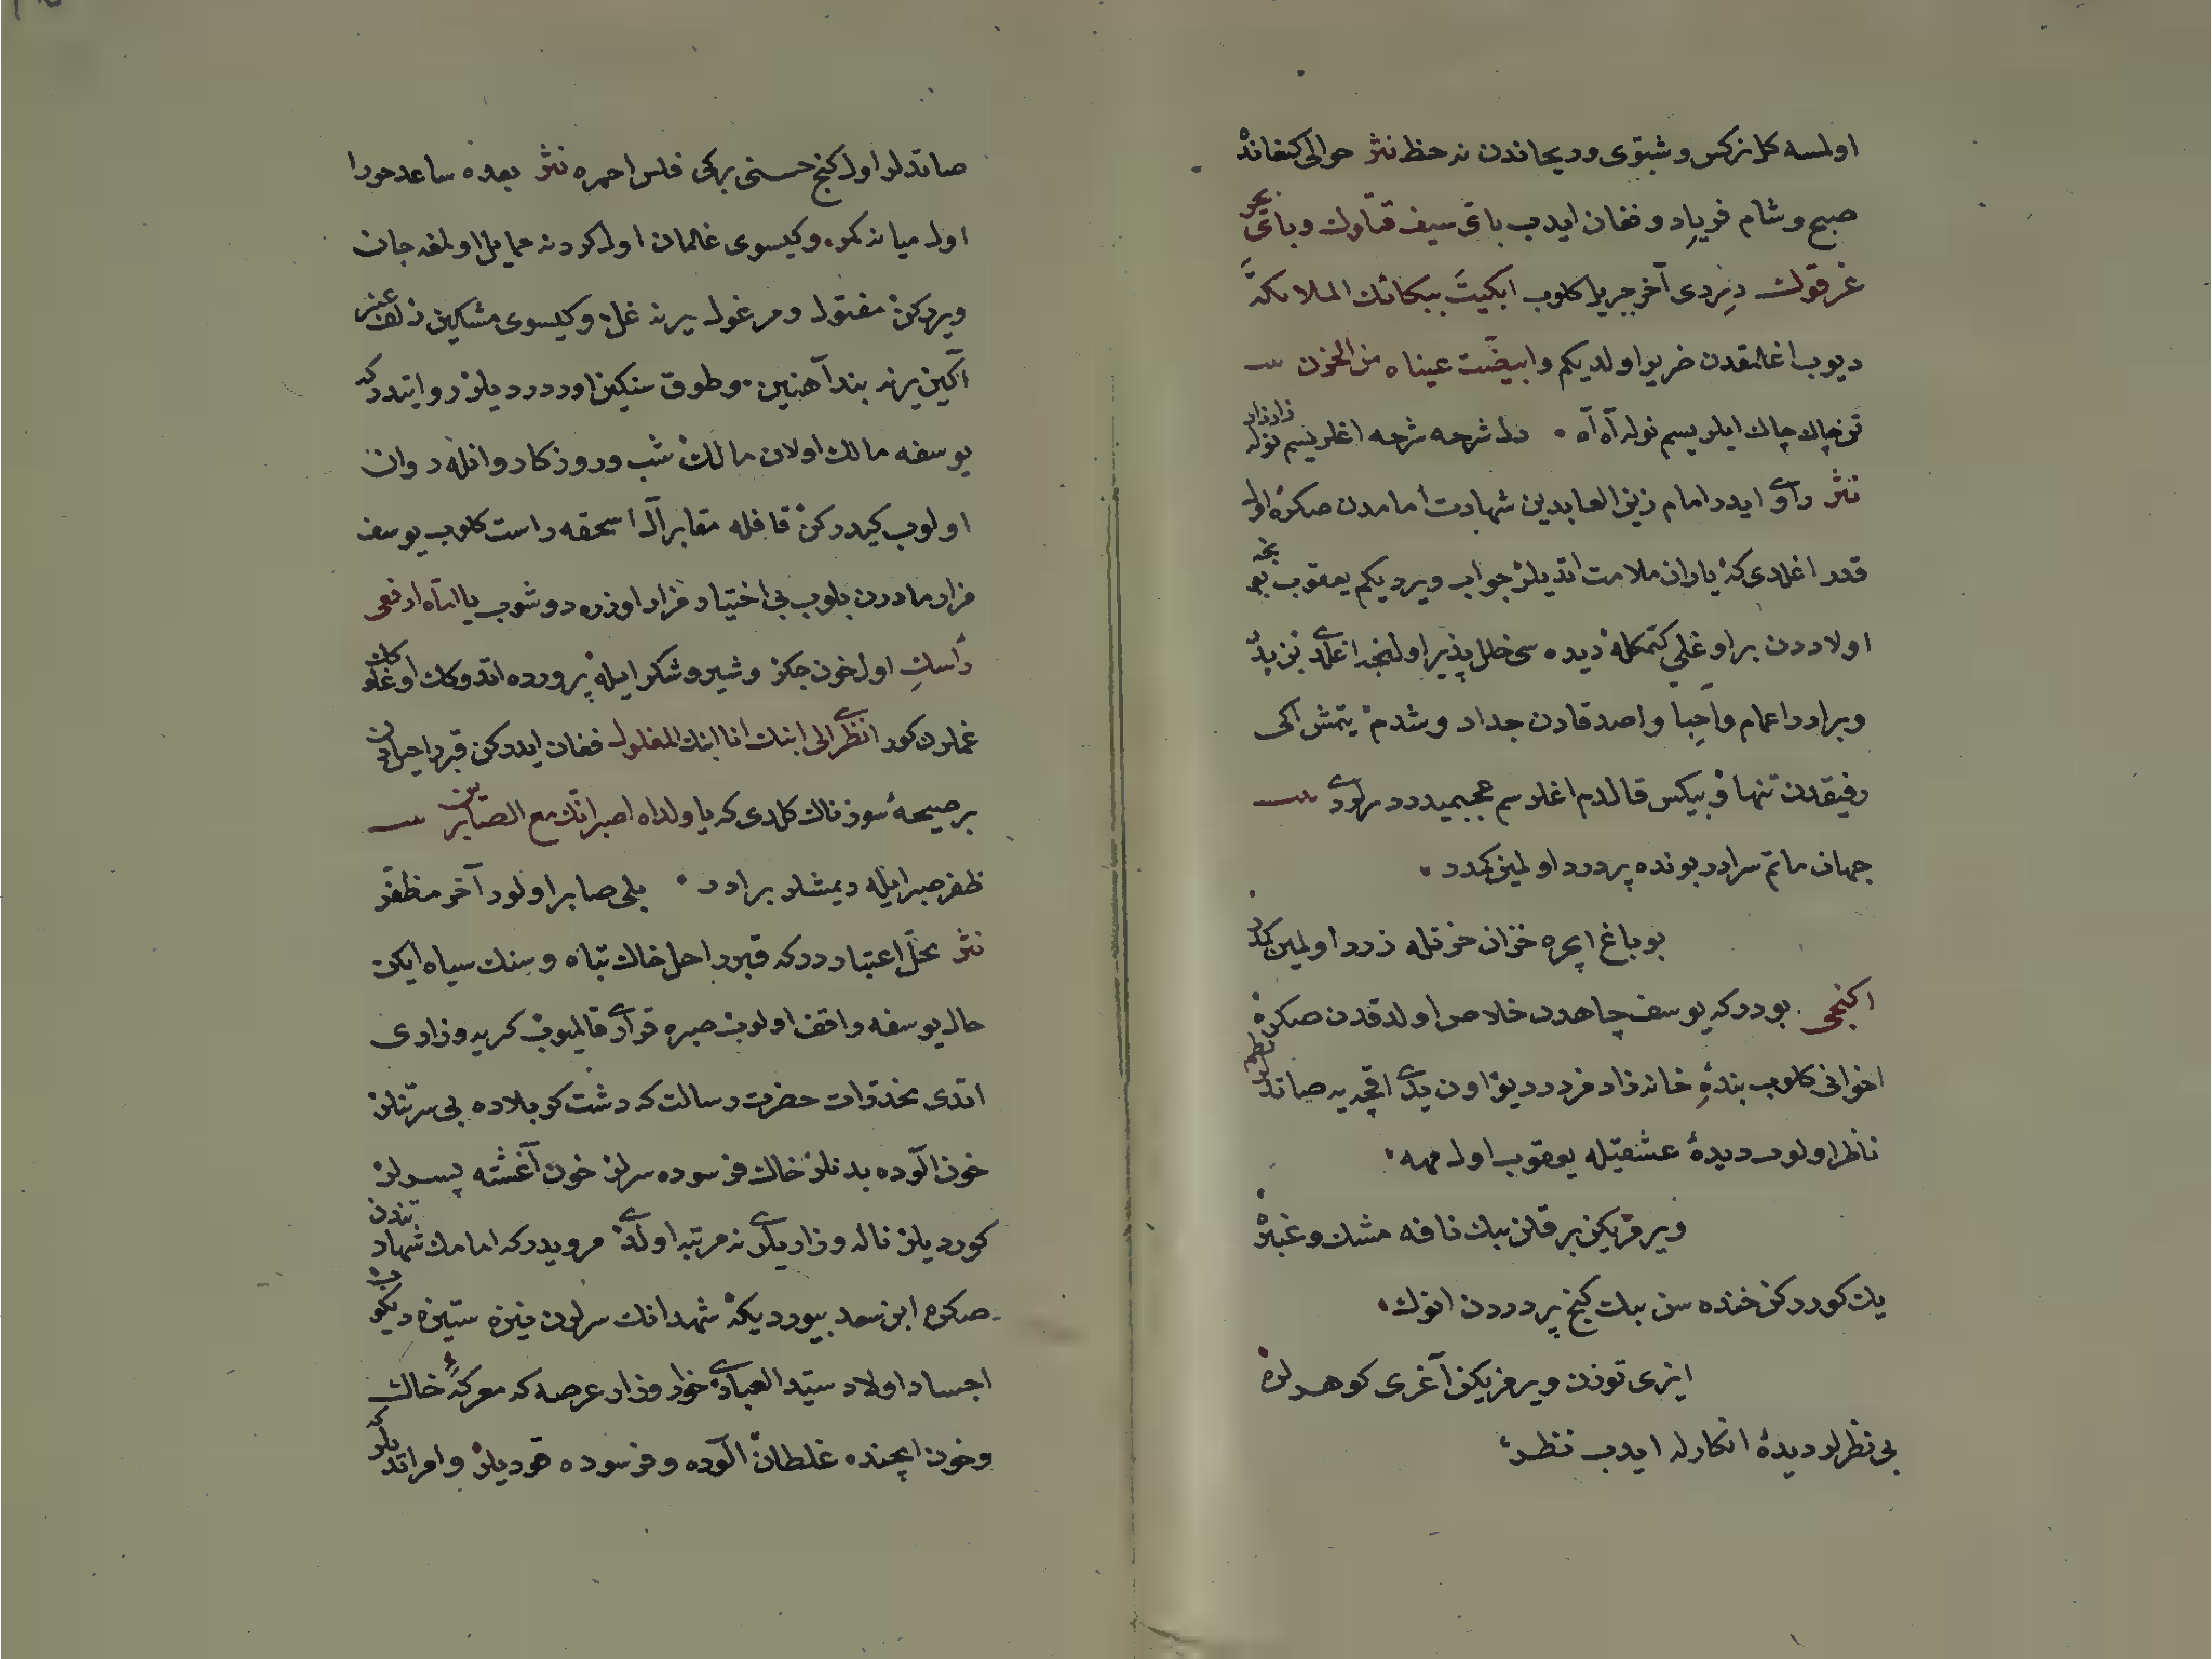 اولمسه کل نرکس و شبّوی و ریحاندن نه حظ نثر حوالی کنعانده
صبح و شام فریاد و فغان ایدب بایّ سیف قتلوك و بایّ بحر
غرقوك دیردی آخر جبریل کلوب ابکیتَ ببکائك الملائکة
دیوب اغلمقدن ضریر اولدیکم وابیضّت عیناه من الحزن
تن چاك چاك ایلر یسم نوله آه آه دل شرحه شرحه اغلر یسم نوله زار زار
نثر راوی ایدر امام زین العابدین شهادت امامدن صکره اول
قدر اغلدی که یاران ملامت اتدیلر جواب ویردیکم یعقوب نجه
اولاددن بر اوغلی کتمکله دیده سی خلل پذیر اولنجه اغلدی بن پدر
و برادر و اعمام و احبا و اصدقادن جدا و شدم یتمش ایکی
رفیقدن تنها و بیکس قالدم اغلرسم عجبمیدر
جهان ماتم سرادر بونده پر درد اولمین کمدر
بو باغ ایچره خزان حزنله زرد اولمین کمدر
اکنجی بودرکه یوسف چاهدن خلاص اولدقدن صکره
اخوانی کلوب بندهٔ خانه زادمزدر دیو اون یدی اقچه یه صاتدیلر نظم
ناظر اولوب دیدهٔ عشقیله یعقوب اول مهه
ویرمزیکن بر قلن بیك نافه مشك و عنبره
یك کوررکن خنده سن بیك کنج پر دردن انوك
اینجی توزن ویرمزیکن آغری کوهرلره
بی نظرلر دیدهٔ انکارله ایدب نظر
صاتدلر اول کنج حسنی برکی فلس احمره نثر بعده ساعد حورا
اول میانه کمر و کیسوی غلمان اول کردنه حمایل اولمغه جان
ویررکن مفتول و مرغول یرینه غل و کیسوی مشکین زلف عنبر
آکین یرنه بند آهنین و طوق سنکین اوردردیلر روایتدرکه
یوسفه مالك اولان مالك شب و روز کاروانله روان
اولوب کیدرکن قافله مقابر آل اسحقه راست کلوب یوسف
مزار مادرن بلوب بی اختیار مزار اوزره دوشوب یا امّاه ارفعی
رأسكِ اول خون جکر و شیر و شکر ایله پرورده اتدوکك اوغلوکك
غللرن کور انظری الی ابنك انا ابنك المغلول فغان ایدرکن قبر راحیلدن
بر صیحهٔ سوزناك کلدی که یا ولداه اصبر انّك مع الصّابرین
ظفر صبر ایله دیمشلر برادر بلی صابر اولور آخر مظفّر
نثر محلّ اعتباردرکه قبر راحل خاك تباه و سنك سیاه ایکن
حال یوسفه واقف اولوب صبره قراری قالمیوب کریه و زاری
اتدی مخدّرات حضرت رسالت که دشت کربلاده بی سر تنلر
خون آلوده بدنلر خاك فرسوده سرلر خون آغشته پسرلر
کوردیلر ناله و زاریلری نه مرتبه اولدی مرویدرکه امامك شهادتندن
صکره ابن سعد بیوردیکه شهدانك سرلرن نیزه ستیزه دیکوب
اجساد اولاد سیّد العبادی خوار و زار عرصه که معرکهٔ خاك
و خون ایچنده غلطان آلوده و فرسوده قودیلر و امر اتدیلرکه